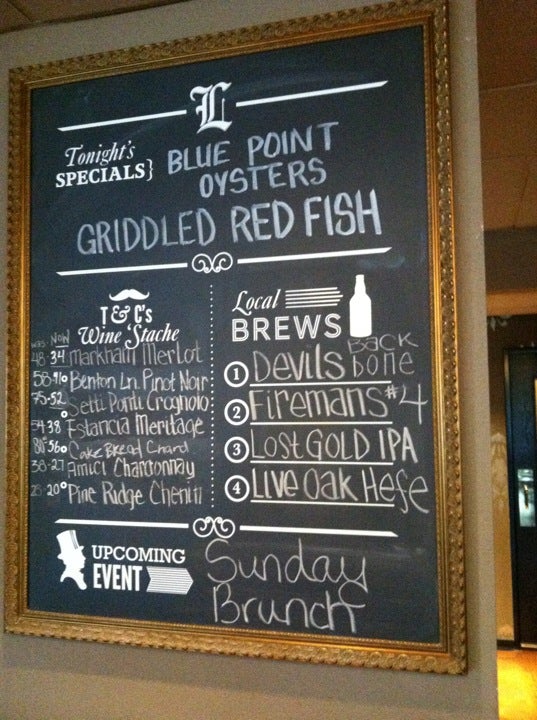 L
Tonight's
SPECIALS} BLUE POINT
OYSTERS
GRIDDLED RED FISH
T & C's
Wine 'Stache
was. NOW
48-34 Markham Merlot
58-41 Benton Ln. Pinot Noir
75-52 Setti Ponti Crognolo
54-38 Estancia Meritage
80-56 Cake Bread Chard
38-27 Amici Chardonnay
20 Pine Ridge Chenin
Local
BREWS
1 DEVILS BACK BONE
2 FIREMANS #4
3 LOST GOLD IPA
4 LIVE OAK HEFE
UPCOMING
EVENT
Sunday
Brunch